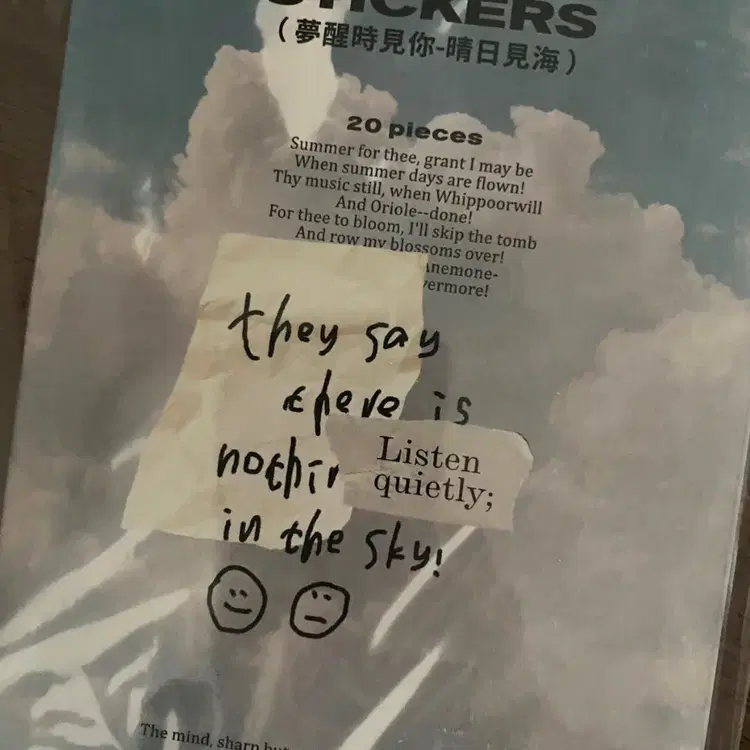 STICKERS
(夢醒時見你-晴日見海)
20 pieces
Summer for thee, grant I may be
When summer days are flown!
Thy music still, when Whippoorwill
And Oriole--done!
For thee to bloom, I'll skip the tomb
And row my blossoms over!
Anemone-
vermore!
they say
there is
nothin
Listen
quietly;
in the sky!
The mind, sharp but